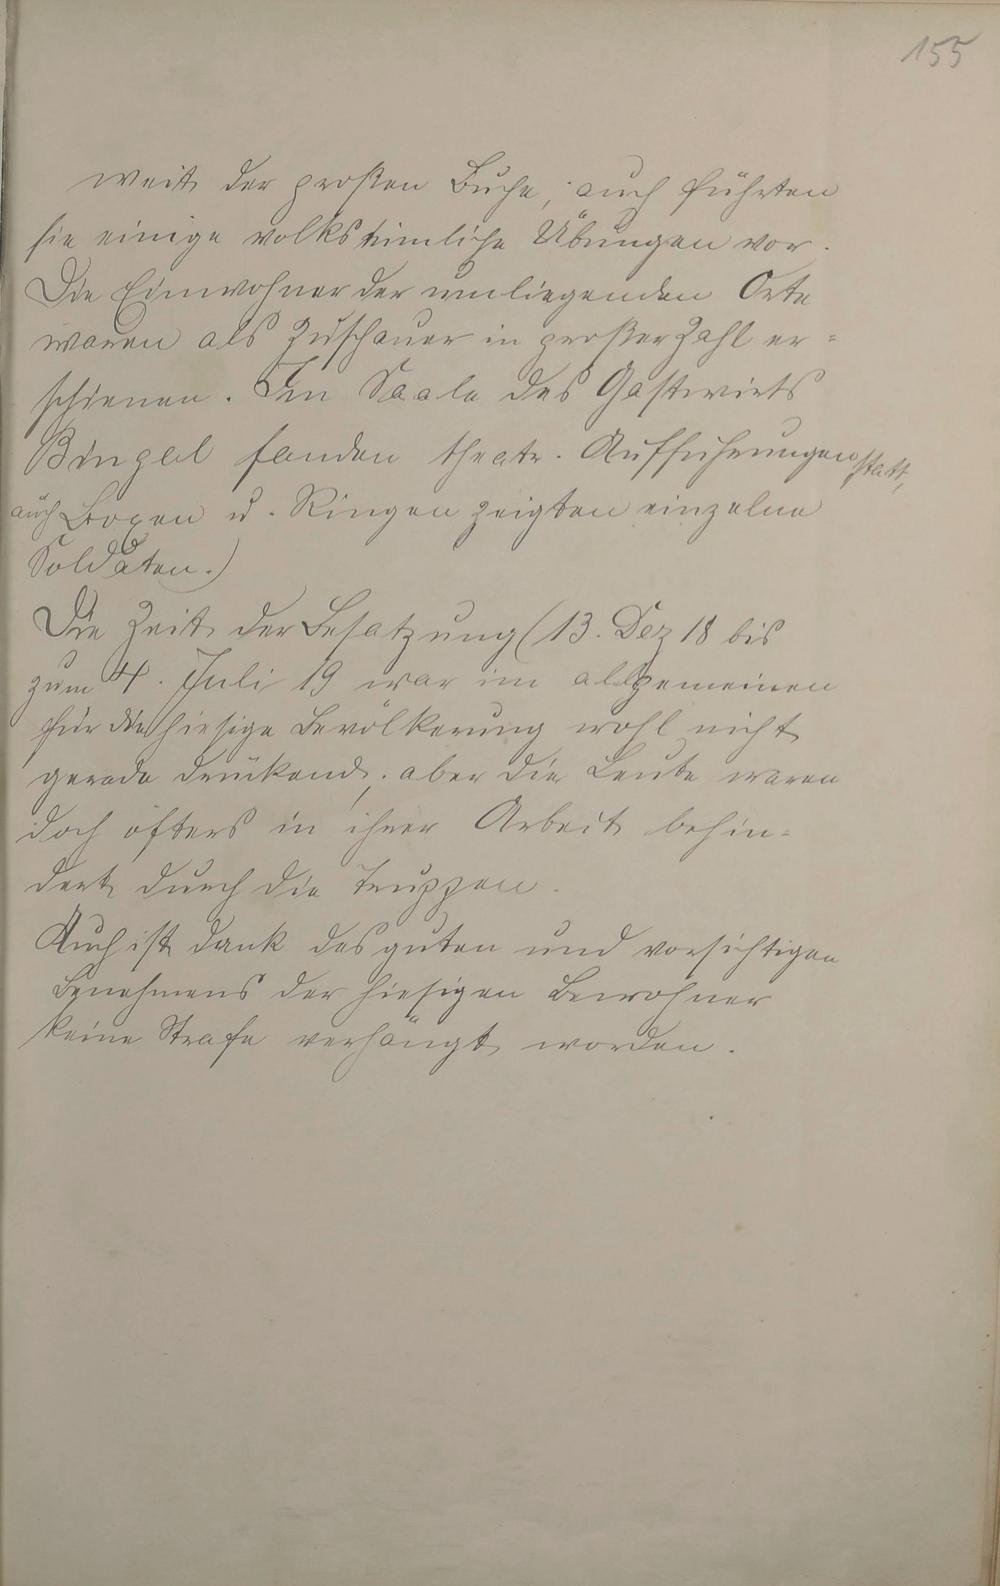 155
weit der großen Buche; auch führten
sie einige volkstümliche Übungen vor.
Die Einwohner der umliegenden Orte
waren als Zuschauer in großer Zahl er=
schienen. Im Saale des Gastwirts
Bingel fanden theatr. Aufführungen statt,
auch Boxen u. Ringen zeigten einzelne
Soldaten.)
Die Zeit der Besatzung (13. Dez 18 bis
zum 4. Juli 19 war im allgemeinen
für die hiesige Bevölkerung wohl nicht
gerade drückend; aber die Leute waren
doch öfters in ihrer Arbeit behin=
dert durch die Truppen.
Auch ist dank des guten und vorsichtigen
Benehmens der hiesigen Bewohner
keine Strafe verhängt worden.